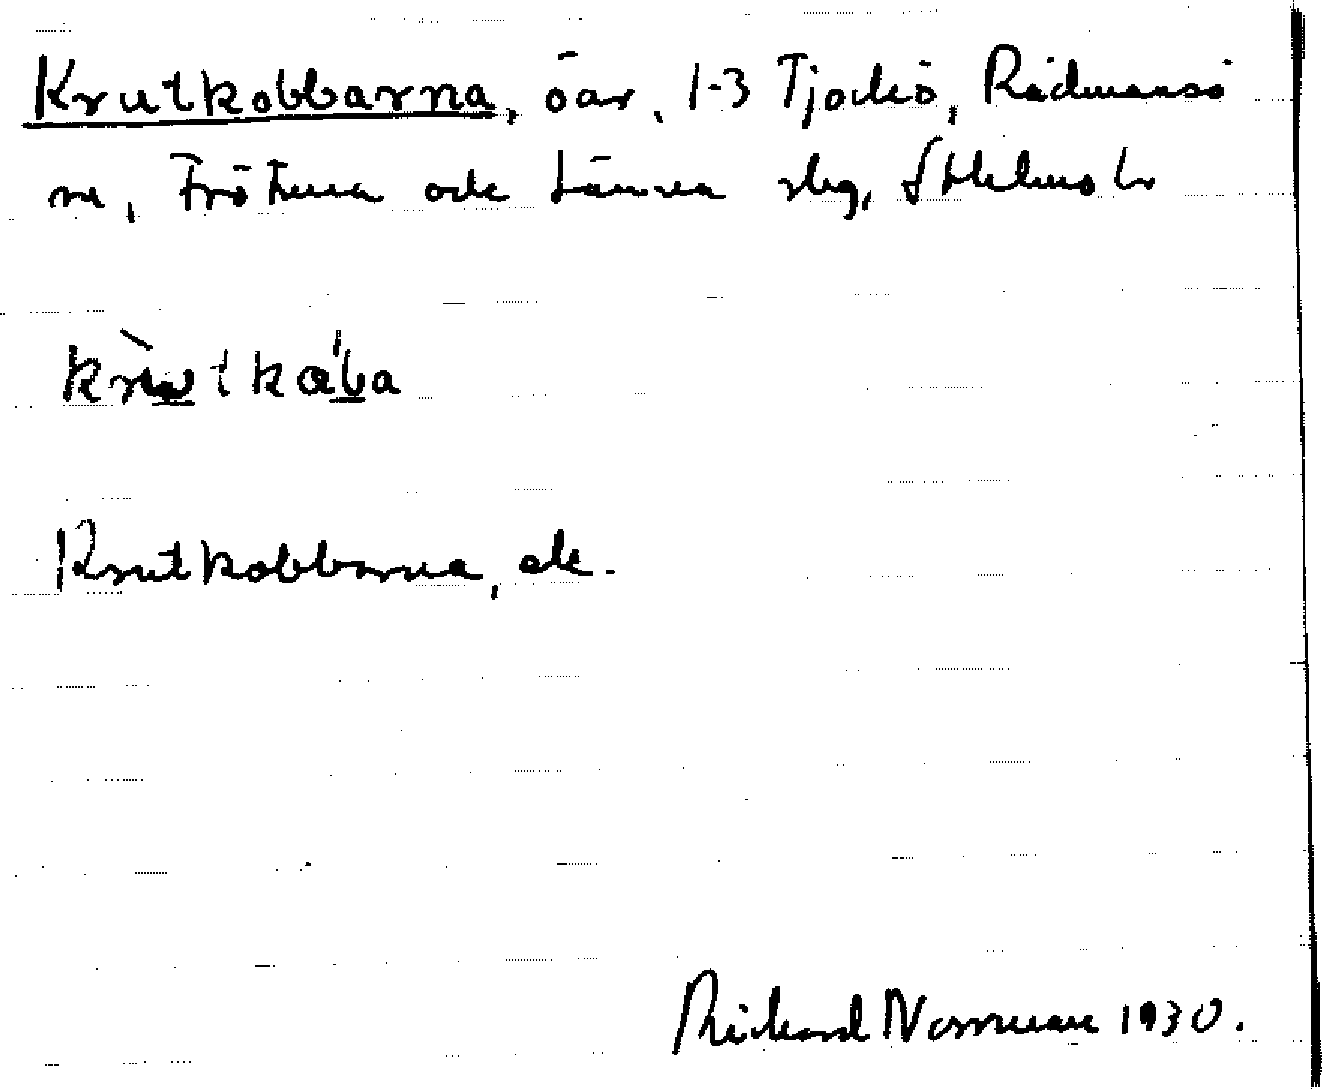 Krutkobbarna, öar, 1-3 Tjockö, Rådmansö
sn, Frötuna och Länna slg, Sthlms l.
krutkåba
Krutkobbarna, ek.
Rickard Norrman 1930.